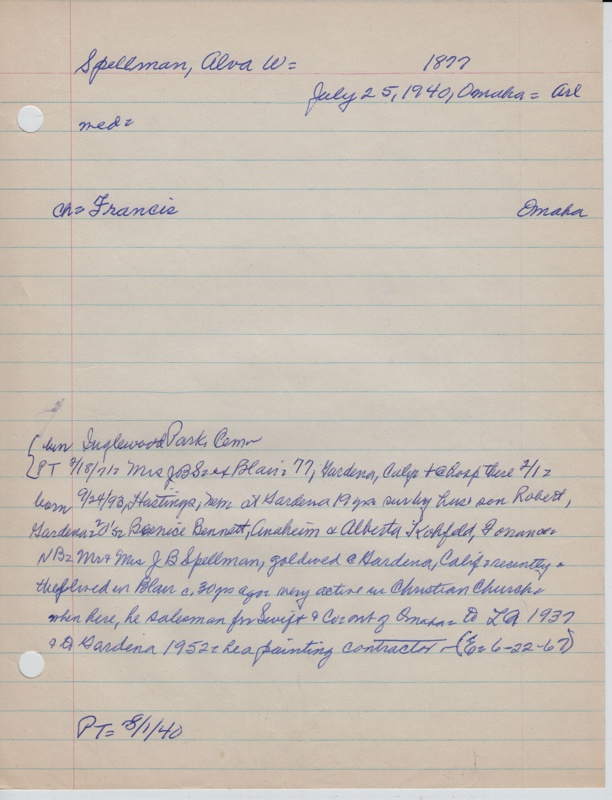 Spellman, Alva W= 1877
July 25, 1940, Omaha = Arl
med=
ch= Francis Omaha
bur Inglewood Park Cem~
PT 2/18/71= Mrs J B S= ex Blair= 77, Gardena, Calif + @ hosp there 2/1=
born 9/24/93, Hastings, Nem at Gardena 19 yrs surv by hus= son Robert,
Gardena= 2 d's= Bernice Bennett, Anaheim & Alberta Kohfeld, Torrance=
NB= Mr & Mrs J B Spellman, gold wed @ Gardena, Calif= recently=
they lived in Blair c. 30 yrs ago= very active in Christian Church=
when here, he salesman for Swift & Co= out of Omaha= to LA 1937
& to Gardena 1952= he a painting contractor - (E= 6-22-67)
PT= 8/1/40